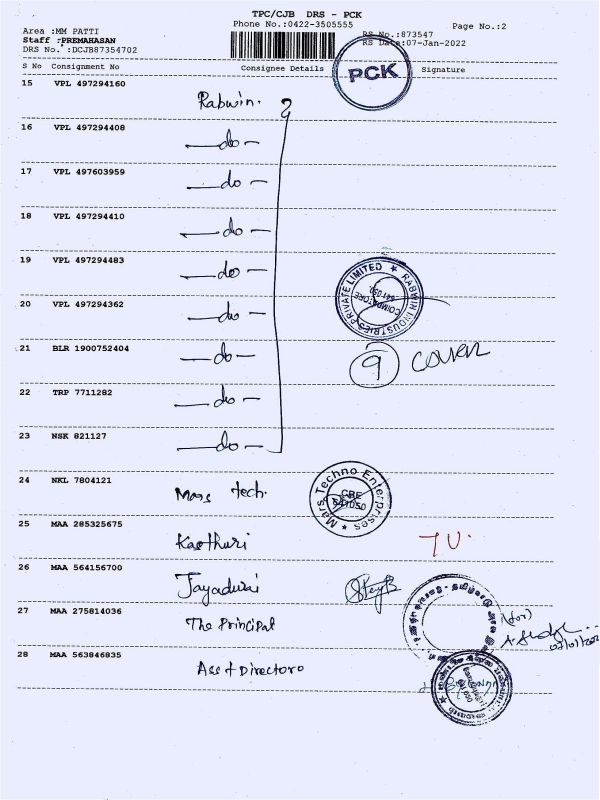 TPC/CJB DRS - PCK
Phone No.:0422-3505555
Page No.:2
Area :MM PATTI
RS No.:873547
Staff :PREMAHASAN
RS Date:07-Jan-2022
DRS No. :DCJB87354702
S No Consignment No Consignee Details Signature
PCK
15 VPL 497294160 Rabwin.
16 VPL 497294408 —do—
17 VPL 497603959 —do—
18 VPL 497294410 —do—
19 VPL 497294483 —do—
RABWIN INDUSTRIES PRIVATE LIMITED ★
COIMBATORE
641 050.
20 VPL 497294362 —do—
21 BLR 1900752404 —do— 9 cover
22 TRP 7711282 —do—
23 NSK 821127 —do—
24 NKL 7804121 Mars tech.
Mars Techno Enterprises ★
CBE
641050
25 MAA 285325675 Kasthuri
26 MAA 564156700 Jayadurai
27 MAA 275814036 The Principal
(for)
28 MAA 563846835 Asst Directoro